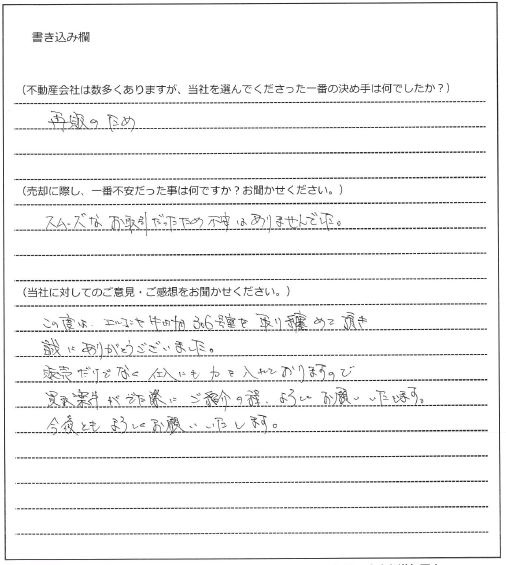 書き込み欄
(不動産会社は数多くありますが、当社を選んでくださった一番の決め手は何でしたか?)
再販のため
(売却に際し、一番不安だった事は何ですか?お聞かせください。)
スムーズなお取引だったため不安はありませんでした。
(当社に対してのご意見・ご感想をお聞かせください。)
この度は、306号室を取り纏めて頂き
誠にありがとうございました。
販売だけでなく仕入にも力を入れておりますので
案件がでた際にご紹介の程、よろしくお願いいたします。
今後ともよろしくお願いいたします。